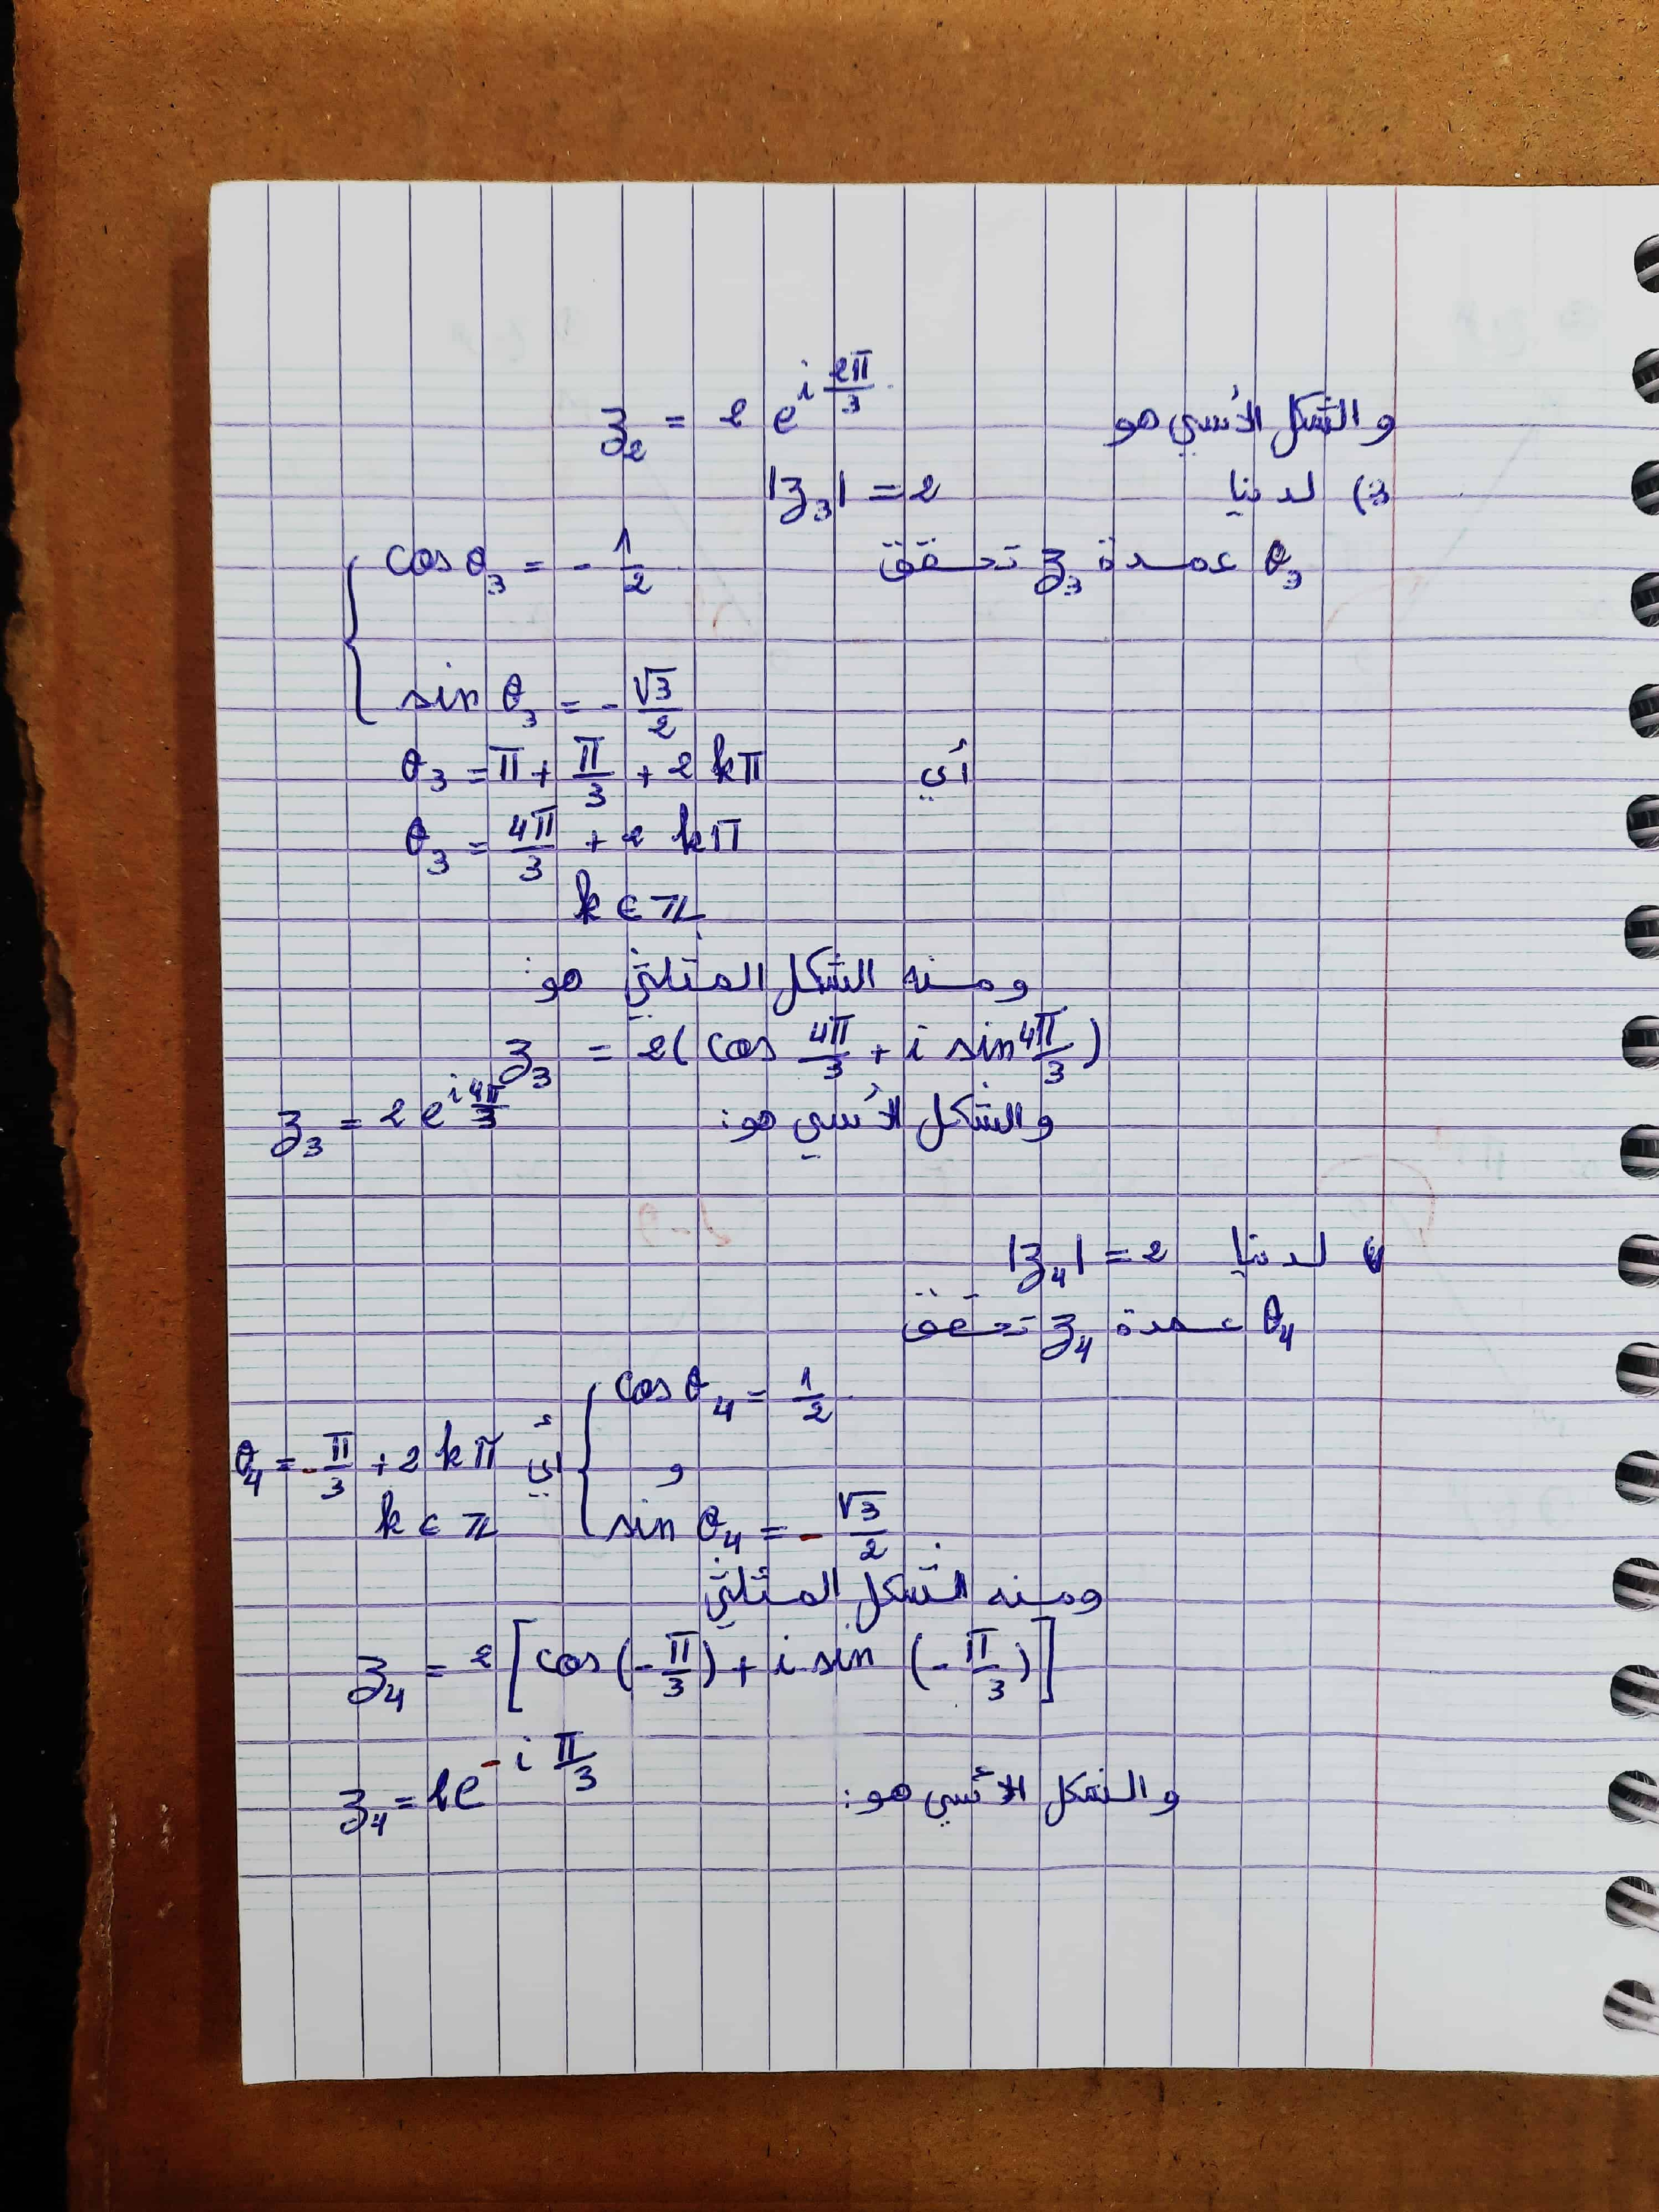 والشكل الأسي هو z₂ = 2 e^{i 2π/3}
3) لدينا |z₃| = 2
θ₃ عمدة z₃ تحقق { cos θ₃ = - 1/2
sin θ₃ = - √3/2
أي θ₃ = π + π/3 + 2kπ
θ₃ = 4π/3 + 2kπ
k ∈ ℤ
ومنه الشكل المثلثي هو:
z₃ = 2( cos 4π/3 + i sin 4π/3 )
والشكل الأسي هو: z₃ = 2 e^{i 4π/3}
4) لدينا |z₄| = 2
θ₄ عمدة z₄ تحقق
{ cos θ₄ = 1/2
و أي θ₄ = - π/3 + 2kπ
sin θ₄ = - √3/2 k ∈ ℤ
ومنه الشكل المثلثي
z₄ = 2 [ cos (- π/3) + i sin (- π/3) ]
والشكل الأسي هو: z₄ = 2e^{- i π/3}